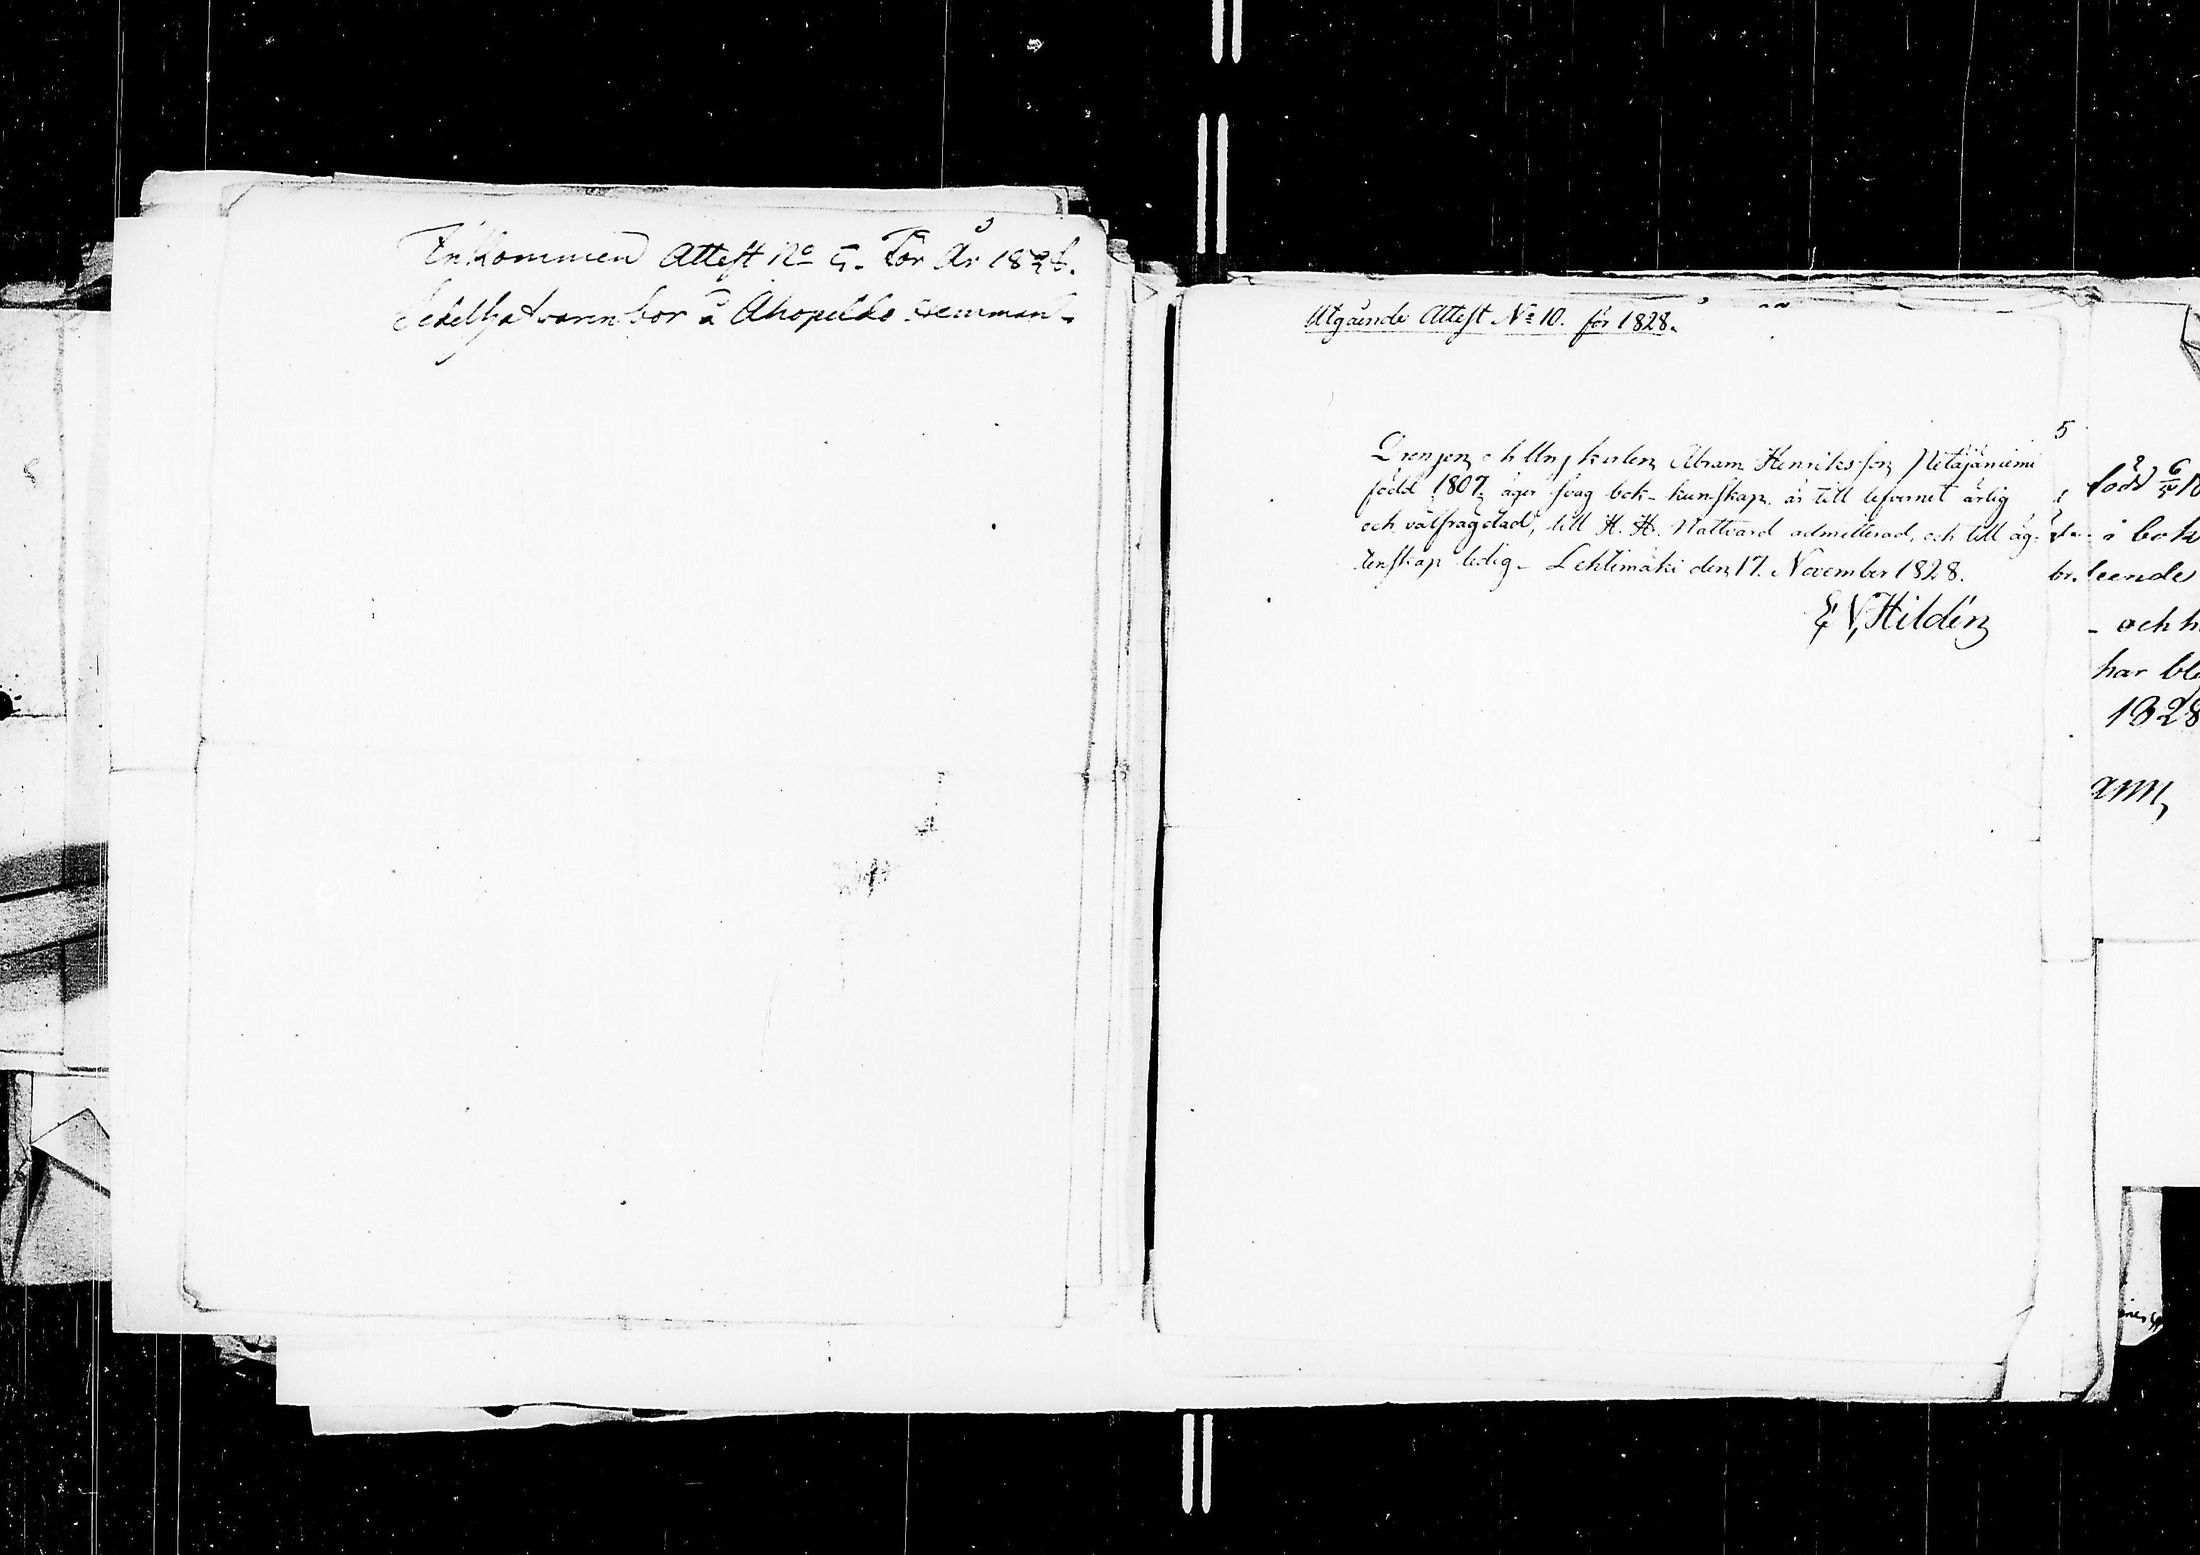 Inkommen Attest No 5. För År 1828.
Sedelhafvaren bor å Ahopelko Hemman.
Utgående Attest No 10. för 1828.
5
Drengen och Ungkarlen Abram Henriksson Pietäjäniemi
född 1807, äger svag bok-kunskap, är till lefvernet ärlig
och välfrägdad, till H. H. Nattvard admitterad, och till äg-
tenskap ledig. Lehtimäki den 17. November 1828.
E N Hildén
född 6
i bok
leende
och h
har ble
1828